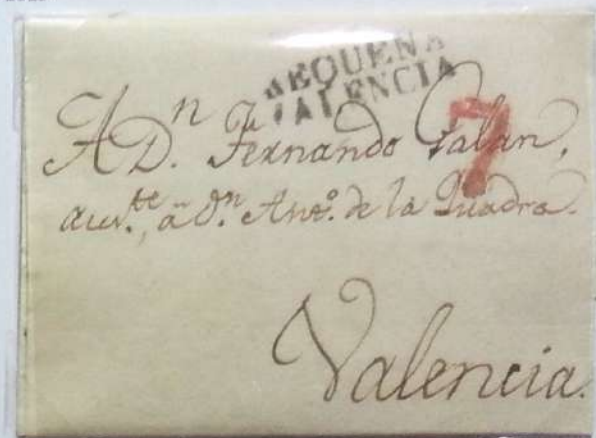 REQUENA
VALENCIA
7
A Dⁿ. Fernando Galan,
aus.ᵗᵉ, á Dⁿ. Antº. de la Quadra.
Valencia.